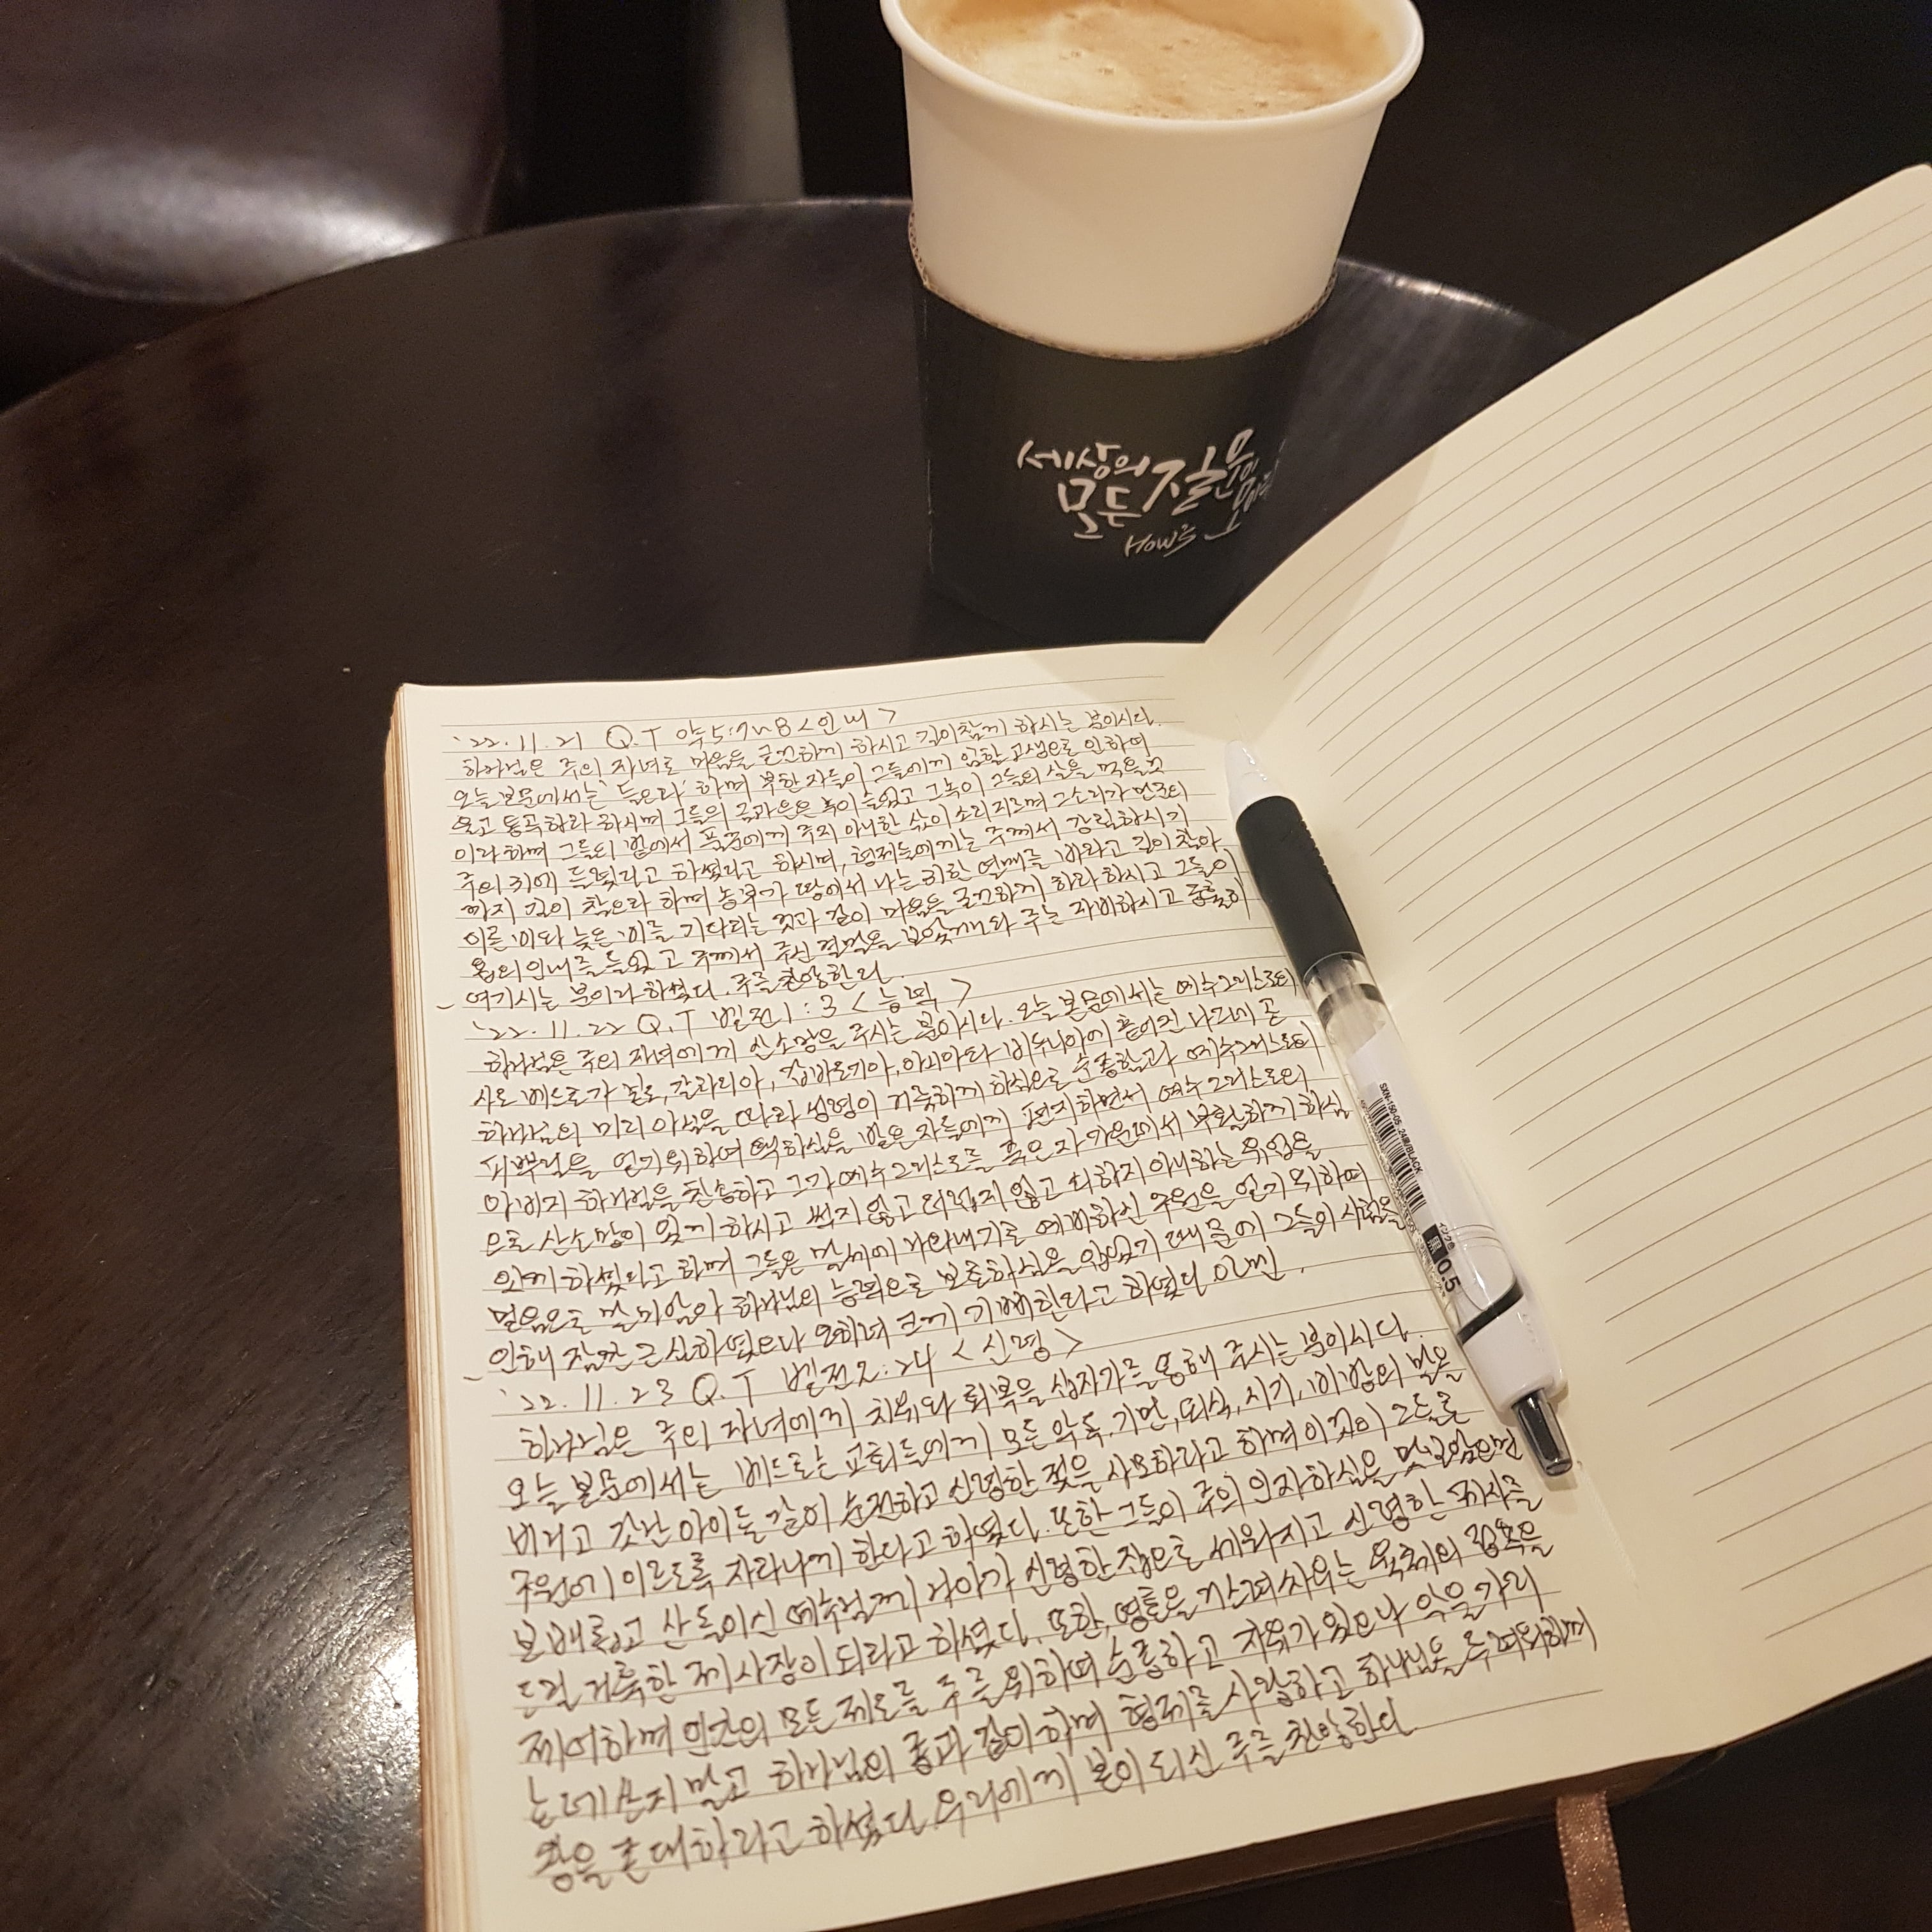 세상의
모든 질문
How's
'22.11.21 Q.T 약5:7~8 <인내>
하나님은 주의 자녀로 마음을 굳건하게 하시고 길이참게 하시는 분이시다.
오늘 본문에서는 '들으라' 하며 부한 자들이 그들에게 임할 고생으로 인하여
울고 통곡하라 하시며 그들의 금과 은은 녹이 슬었고 그 녹이 그들의 살을 먹을 것
이라 하며 그들의 밭에서 품꾼에게 주지 아니한 삯이 소리 지르며 그 소리가 만군의
주의 귀에 들렸다고 하셨다고 하시며, 형제들에게는 주께서 강림하시기
까지 길이 참으라 하며 농부가 땅에서 나는 귀한 열매를 바라고 길이 참아
이른 비와 늦은 비를 기다리는 것과 같이 마음을 굳건하게 하라 하시고 그들이
욥의 인내를 들었고 주께서 주신 결말을 보았거니와 주는 자비하시고 긍휼히
여기시는 분이라 하셨다. 주를 찬양한다.
'22.11.22 Q.T 벧전1:3 <능력>
하나님은 주의 자녀에게 산 소망을 주시는 분이시다. 오늘 본문에서는 예수 그리스도의
사도 베드로가 본도, 갈라디아, 갑바도기아, 아시아와 비두니아에 흩어진 나그네 곧
하나님의 미리 아심을 따라 성령이 거룩하게 하심으로 순종함과 예수 그리스도의
피 뿌림을 얻기 위하여 택하심을 받은 자들에게 편지하면서 예수 그리스도의
아버지 하나님을 찬송하고 그가 예수 그리스도를 죽은 자 가운데서 부활하게 하심
으로 산 소망이 있게 하시고 썩지 않고 더럽지 않고 쇠하지 아니하는 유업을
잇게 하셨다고 하며 그들은 말세에 나타내기로 예비하신 구원을 얻기 위하여
믿음으로 말미암아 하나님의 능력으로 보호하심을 받았기 때문에 그들의 시험을
인해 잠깐 근심하였으나 오히려 크게 기뻐한다고 하였다 아멘.
'22.11.23 Q.T 벧전2:24 <신령>
하나님은 주의 자녀에게 치유와 회복을 십자가를 통해 주시는 분이시다.
오늘 본문에서는 베드로는 교회들에게 모든 악독, 기만, 외식, 시기, 비방의 말을
버리고 갓난 아이들 같이 순전하고 신령한 젖을 사모하라고 하며 이것이 그들로
구원에 이르도록 자라나게 한다고 하였다. 또한 그들이 주의 인자하심을 맛보았으면
보배롭고 산 돌이신 예수님께 나아가 신령한 집으로 세워지고 신령한 제사를
드릴 거룩한 제사장이 되라고 하셨다. 또한, 영혼을 거슬려 싸우는 육체의 정욕을
제어하며 인간의 모든 제도를 주를 위하여 순종하고 자유가 있으나 악을 가리
는데 쓰지 말고 하나님의 종과 같이 하며 형제를 사랑하고 하나님을 두려워하며
왕을 존대하라고 하셨다 우리에게 본이 되신 주를 찬양한다
SXN-150-05 24黒/BLACK
インク色
黒 0.5